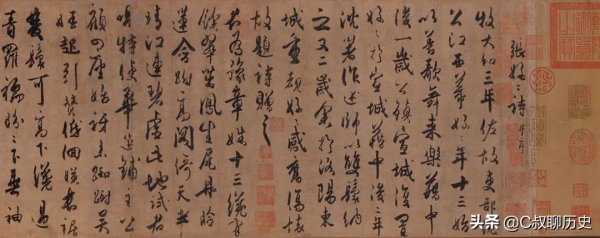 張好〻詩 并序
牧大和三年佐故吏部沈
公江西幕好〻年十三始
以善歌舞來樂籍中
後一歲公鎮宣城復置
好〻於宣城籍中後二年
沈著作述師以雙鬟納
之又二歲余於洛陽東
城重覩好〻感舊傷懷
故題詩贈之
君為豫章姝十三纔有
餘翠茁鳳生尾丹臉
蓮含跗高閣倚天半
晴江連碧虛此地試君
唱特使華筵鋪主公
顧四座始訝來踟躕吳
娃起引贊低佪映長裾
雙鬟可高下纔過
青羅襦盼〻下垂袖
头条 @C叔聊历史